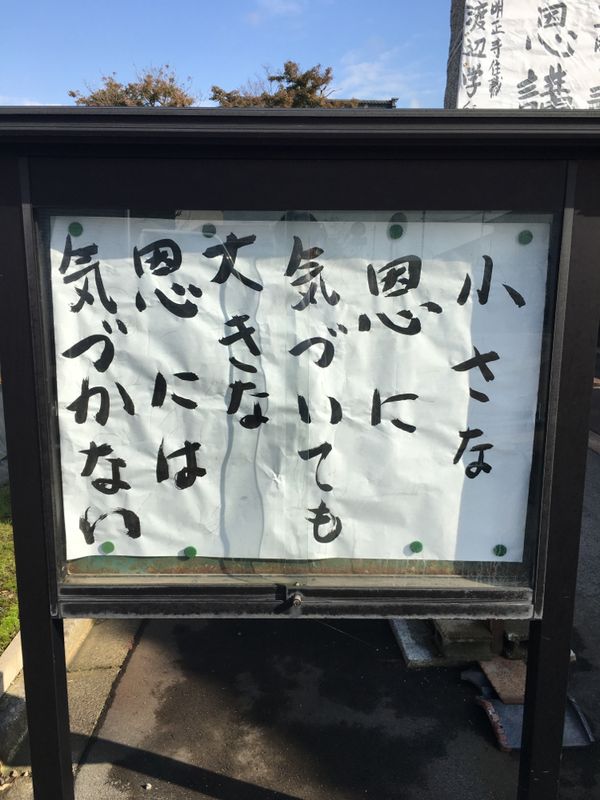 小さな
恩に
気づいても
大きな
恩には
気づかない
恩講
明正寺住職
渡辺学